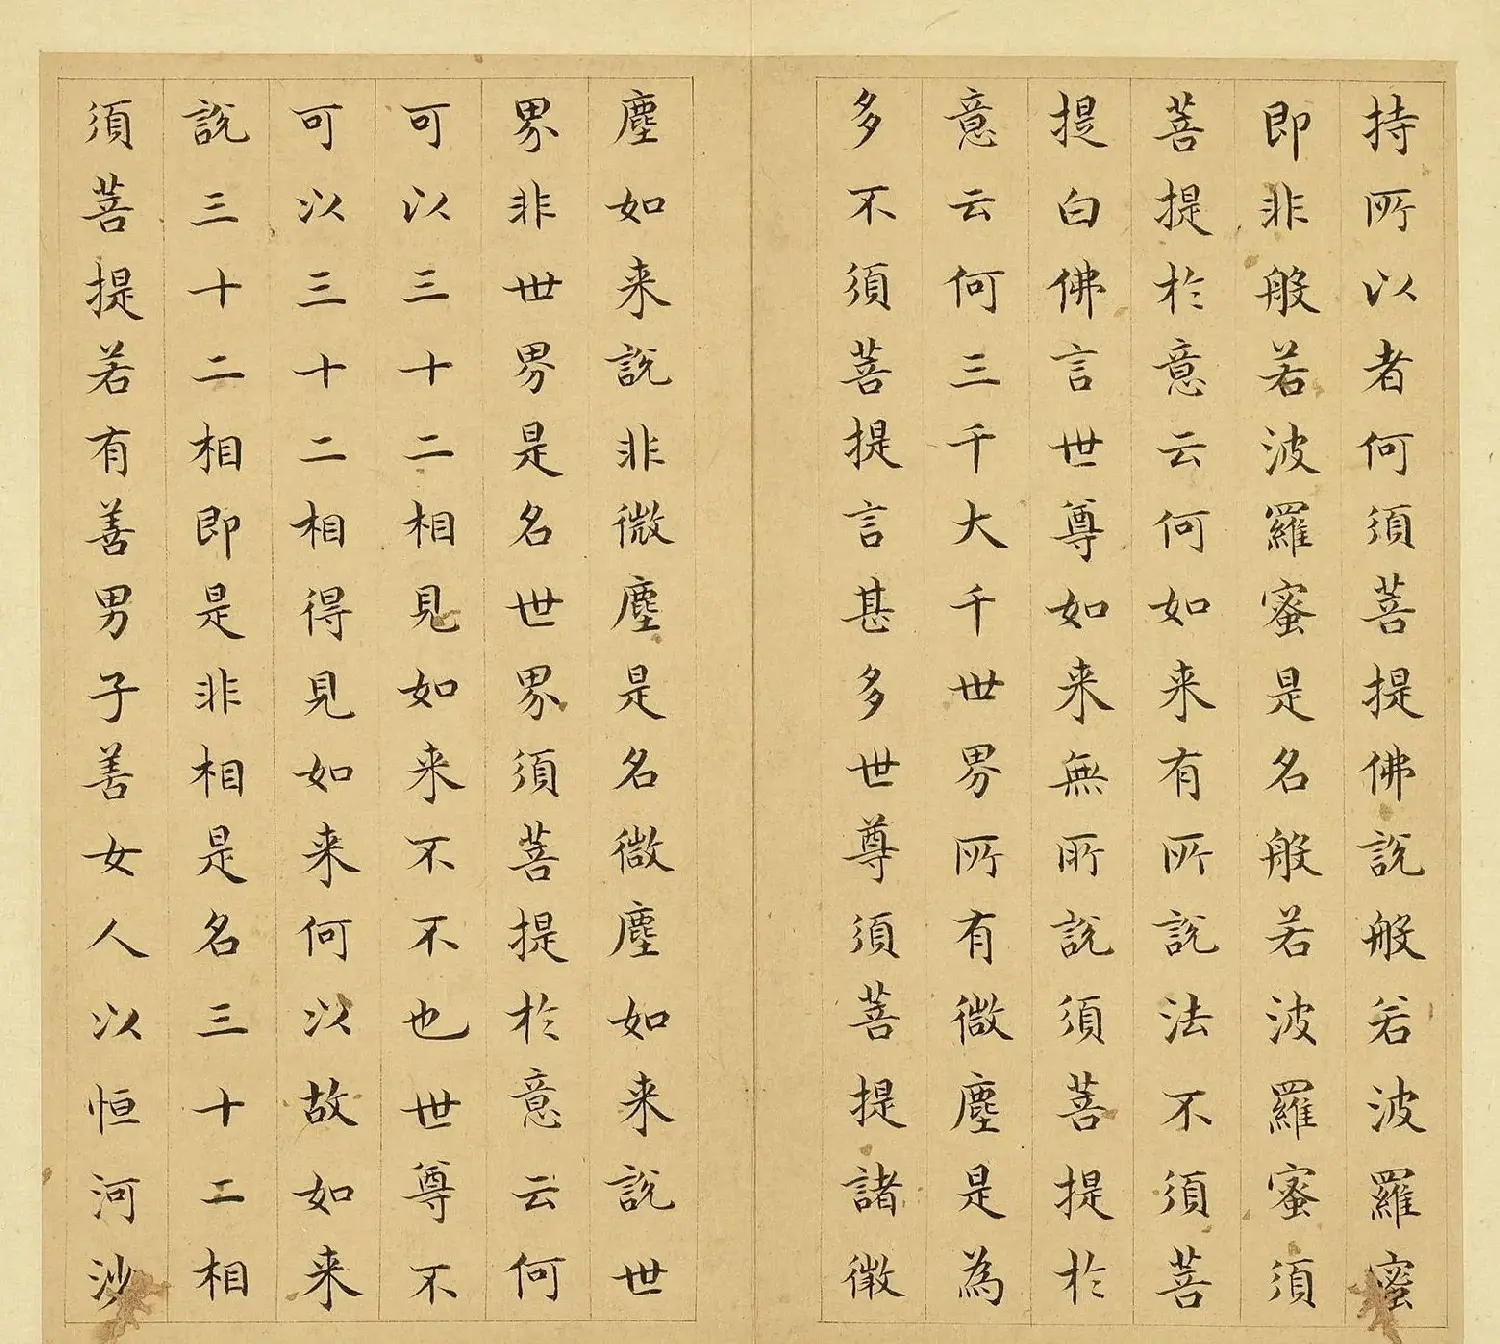 持所以者何須菩提佛說般若波羅蜜
即非般若波羅蜜是名般若波羅蜜須
菩提於意云何如来有所說法不須菩
提白佛言世尊如来無所說須菩提於
意云何三千大千世界所有微塵是為
多不須菩提言甚多世尊須菩提諸微
塵如来說非微塵是名微塵如来說世
界非世界是名世界須菩提於意云何
可以三十二相見如来不不也世尊不
可以三十二相得見如来何以故如来
說三十二相即是非相是名三十二相
須菩提若有善男子善女人以恒河沙